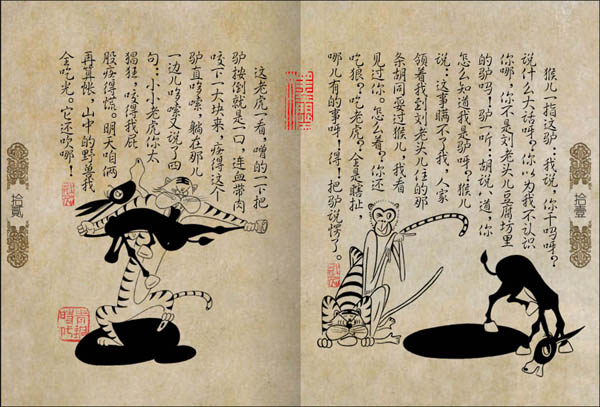 猴儿一指这驴：我说，你干吗呀？
说什么大话呀？你以为我不认识
你哪，你不是刘老头儿豆腐坊里
的驴吗！驴一听，胡说，道，你
怎么知道我是驴呀？猴儿
说：这事瞒不了我，人家
领着我到刘老头儿住的那
条胡同耍过猴儿，我看
见过你。怎么着？你还
吃狼？吃老虎？全是瞎扯，
哪儿有的事呀！得！把驴说愣了。
拾壹
这老虎一看，噌的一下把
驴按倒就是一口，连血带肉
咬下一大块来，疼得这个
驴直哆嗦，躺在那儿
一边儿哆嗦又说了四
句：小小老虎你太
猖狂，咬得我屁
股疼得慌。明天咱俩
再算帐，山中的野兽我
全吃光。它还吹哪！
拾貳